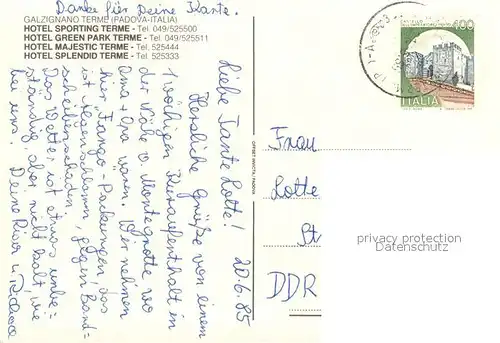 Danke für Deine Karte.
GALZIGNANO TERME (PADOVA-ITALIA)
HOTEL SPORTING TERME - Tel. 049/525500
HOTEL GREEN PARK TERME - Tel. 049/525511
HOTEL MAJESTIC TERME - Tel. 525444
HOTEL SPLENDID TERME - Tel. 525333
20.6.85
Liebe Tante Lotte!
Herzliche Grüße von einem
1 wöchigen Kuraufenthalt in
der Nähe v. Montegrotto wo
Oma + Opa waren. Wir nehmen
hier Fango-Packungen, das
ist Meeresschlamm, gegen Band-
scheibenschaden.
Das Wetter ist etwas unbe-
ständig aber nicht kalt, wie
bei uns. Deine
OFFSET INVICTA PADOVA
400
ITALIA
Frau
Lotte
St
DDR
privacy protection
Datenschutz